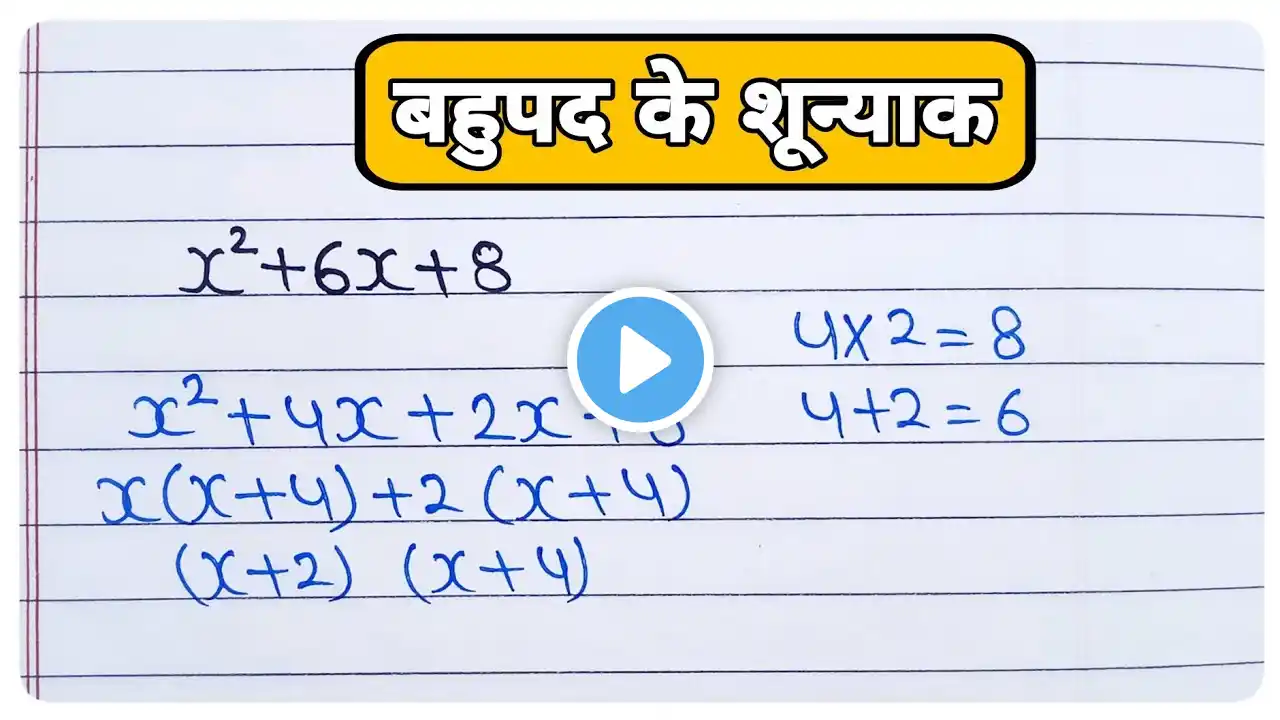 बहुपद के शून्याक
x²+6x+8
4x2=8
x²+4x+2x+8
4+2=6
x(x+4)+2(x+4)
(x+2) (x+4)